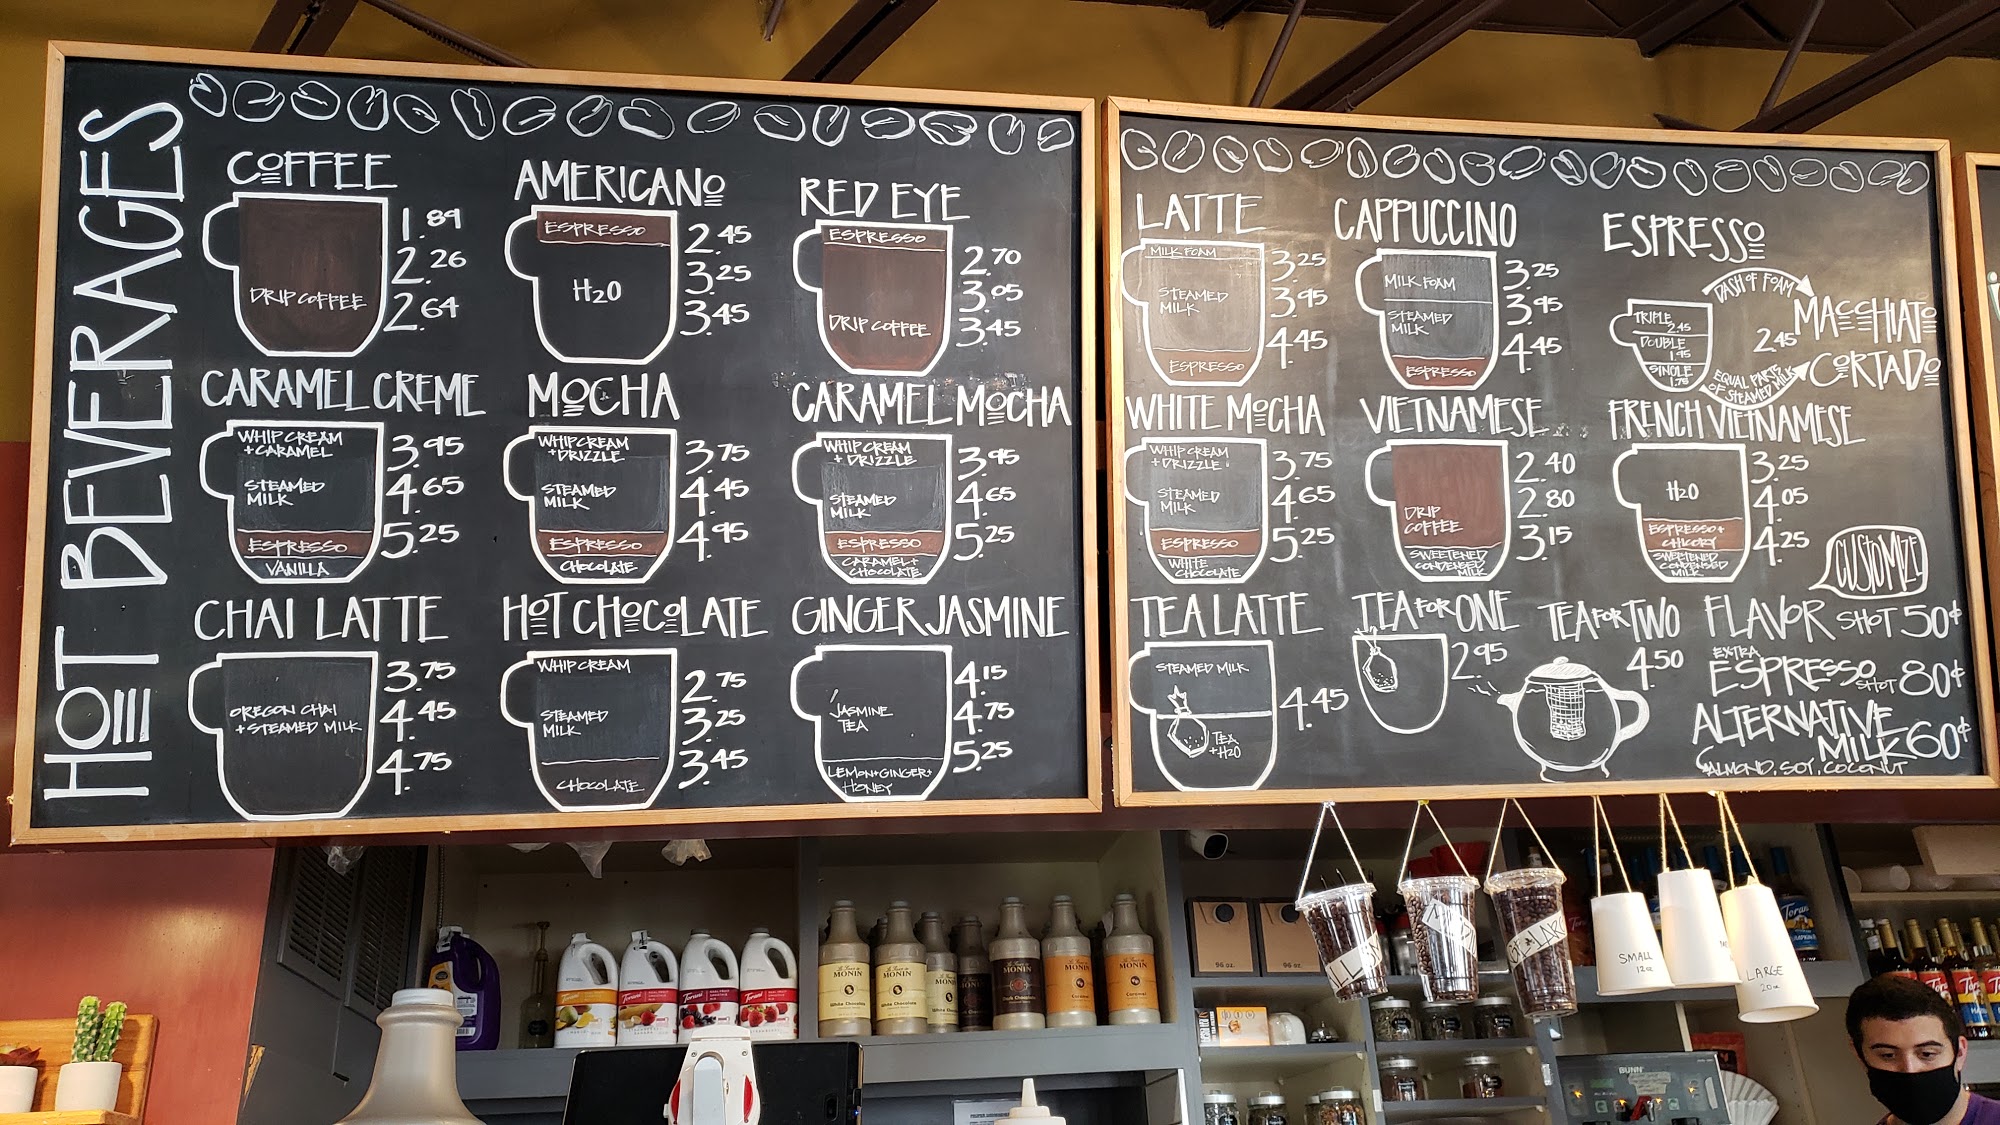 HOT BEVERAGES
COFFEE
DRIP COFFEE
1.89
2.26
2.64
AMERICANO
ESPRESSO
H2O
2.45
3.25
3.45
RED EYE
ESPRESSO
DRIP COFFEE
2.70
3.05
3.45
CARAMEL CREME
WHIP CREAM
+ CARAMEL
STEAMED
MILK
ESPRESSO
VANILLA
3.95
4.65
5.25
MOCHA
WHIP CREAM
+ DRIZZLE
STEAMED
MILK
ESPRESSO
CHOCOLATE
3.75
4.45
4.95
CARAMEL MOCHA
WHIP CREAM
+ DRIZZLE
STEAMED
MILK
ESPRESSO
CARAMEL +
CHOCOLATE
3.95
4.65
5.25
CHAI LATTE
OREGON CHAI
+ STEAMED MILK
3.75
4.45
4.75
HOT CHOCOLATE
WHIP CREAM
STEAMED
MILK
CHOCOLATE
2.75
3.25
3.45
GINGER JASMINE
JASMINE
TEA
LEMON + GINGER +
HONEY
4.15
4.75
5.25
LATTE
MILK FOAM
STEAMED
MILK
ESPRESSO
3.25
3.95
4.45
CAPPUCCINO
MILK FOAM
STEAMED
MILK
ESPRESSO
3.25
3.95
4.45
ESPRESSO
TRIPLE
2.45
DOUBLE
1.95
SINGLE
1.75
DASH OF FOAM
MACCHIATO
2.45
CORTADO
EQUAL PARTS
OF STEAMED MILK
WHITE MOCHA
WHIP CREAM
+ DRIZZLE
STEAMED
MILK
ESPRESSO
WHITE
CHOCOLATE
3.75
4.65
5.25
VIETNAMESE
DRIP
COFFEE
SWEETENED
CONDENSED
MILK
2.40
2.80
3.15
FRENCH VIETNAMESE
H2O
ESPRESSO +
CHICORY
SWEETENED
CONDENSED
MILK
3.25
4.05
4.25
TEA LATTE
STEAMED MILK
TEA
+ H2O
4.45
TEA FOR ONE
2.95
TEA FOR TWO
4.50
CUSTOMIZE
FLAVOR SHOT 50¢
EXTRA
ESPRESSO SHOT 80¢
ALTERNATIVE
MILK 60¢
ALMOND, SOY, COCONUT
SMALL
12oz
LARGE
20oz
MONIN
White Chocolate
MONIN
White Chocolate
MONIN
MONIN
MONIN
Dark Chocolate
MONIN
Caramel
MONIN
Caramel
Torani
Torani
Torani
Torani
96 oz.
96 oz.
BUNN